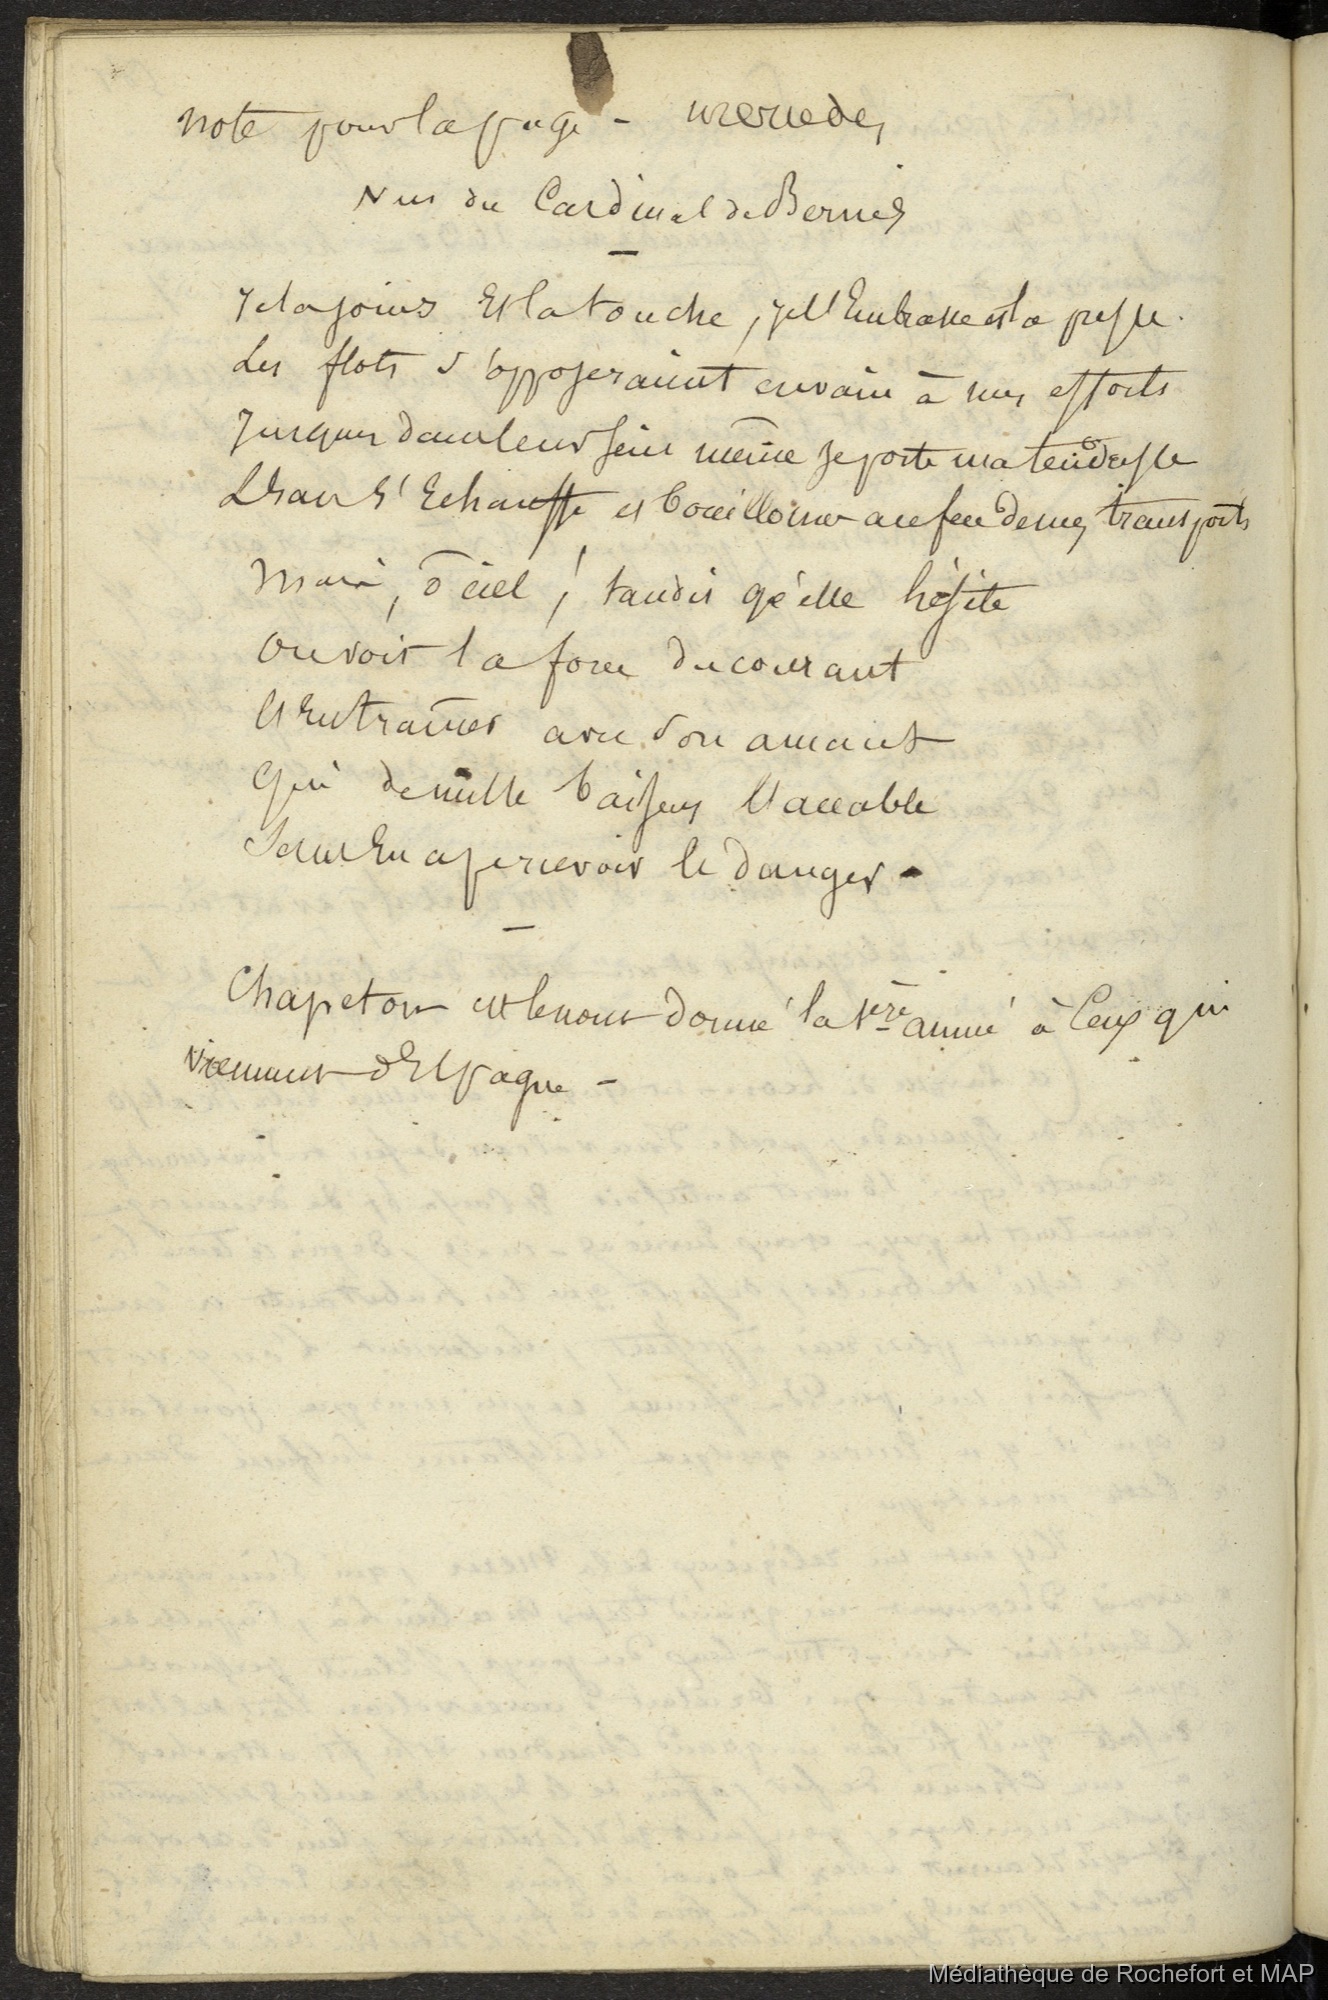 note pour la page -
Vers du Cardinal de Bernis
Je la joins et la touche, je l'embrasse et la presse.
Les flots s'opposeraient envain à mes efforts
Jusques dans leur sein même je porte ma tendresse
L'eau s'echauffe et bouillonne au feu de mes transports
mais, ô ciel ! tandis qu'elle hésite
on voit la force du courant
l'entrainer avec son amant
Qui de mille baisers l'accable
Sans en apercevoir le danger -
Chapeton est le nom donné la 1ere année à Ceux qui
viennent d'Espagne -
Médiathèque de Rochefort et MAP